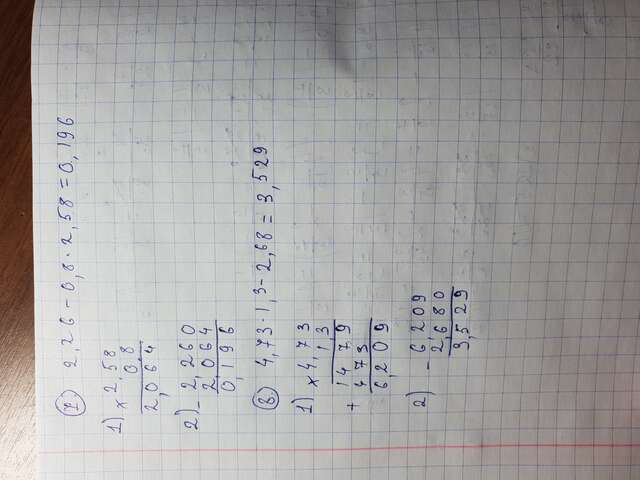 7. 2,26 - 0,8 · 2,58 = 0,196
1) × 2,58
0,8
2,064
2) - 2,260
2,064
0,196
8. 4,73 · 1,3 - 2,68 = 3,529
1) × 4,73
1,3
1479
+
473
6,209
2) - 6,209
2,680
3,529